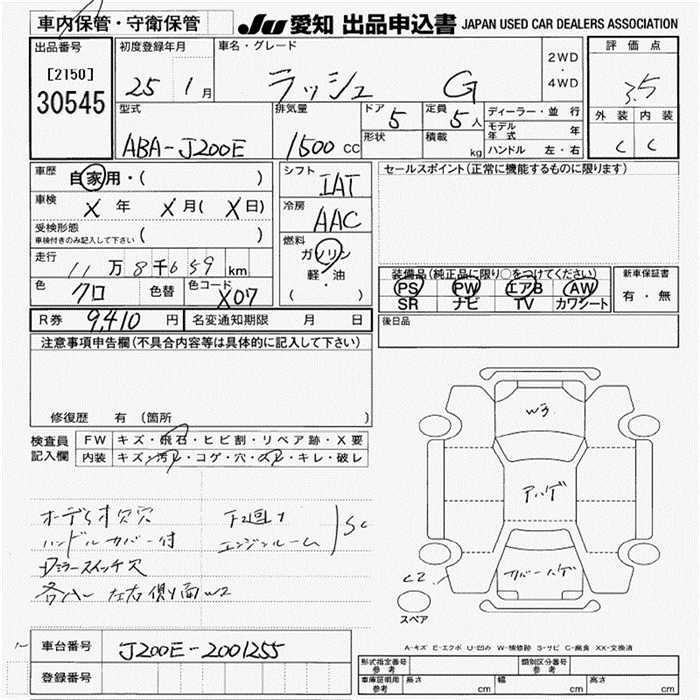 車内保管・守衛保管
JU 愛知 出品申込書 JAPAN USED CAR DEALERS ASSOCIATION
出品番号
[2150]
30545
初度登録年月
25 1月
車名・グレード
ラッシュ G
2WD
・
4WD
評価点
3.5
外装 内装
C C
型式
ABA-J200E
排気量
1500 CC
ドア 5
形状
定員 5人
積載 kg
ディーラー・並行
モデル年式 年
ハンドル 左・右
車歴
自家用・( )
車検
X 年 X 月 (X日)
受検形態
車検付きのみ記入して下さい ( )
走行
11万8千659 km
色 クロ 色替 色コード X07
R券 9,410 円 名変通知期限 月 日
シフト
IAT
冷房
AAC
燃料
ガソリン
軽・油
( )
セールスポイント(正常に機能するものに限ります)
装備品(純正品に限り○をつけてください)
PS PW エアB AW
SR ナビ TV カワシート
新車保証書
有・無
後日品
注意事項申告欄(不具合内容等は具体的に記入して下さい)
修復歴 有(箇所 )
検査員記入欄
FW キズ・飛石・ヒビ割・リペア跡・X要
内装 キズ・汚レ・コゲ・穴・スレ・キレ・破レ
オーデオ欠穴
ハンドルカバー付
Dミラースイッチ欠
下回り
エンジンルーム
SC
左右側面W2
W3
アハゲ
カバーハゲ
C2
スペア
A-キズ E-エクボ U-凹み W-補修跡 S-サビ C-腐食 XX-交換済
車台番号 J200E-2001255
登録番号
形式指定番号 参考
類別区分番号 参考
車庫証明用 参考 長さ cm 幅 cm 高さ cm